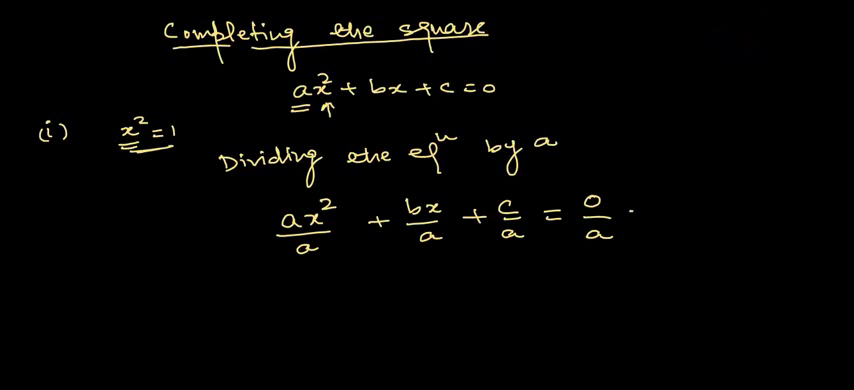 Completing the square
ax² + bx + c = 0
(i) x² = 1
Dividing the eqⁿ by a
ax²/a + bx/a + c/a = 0/a